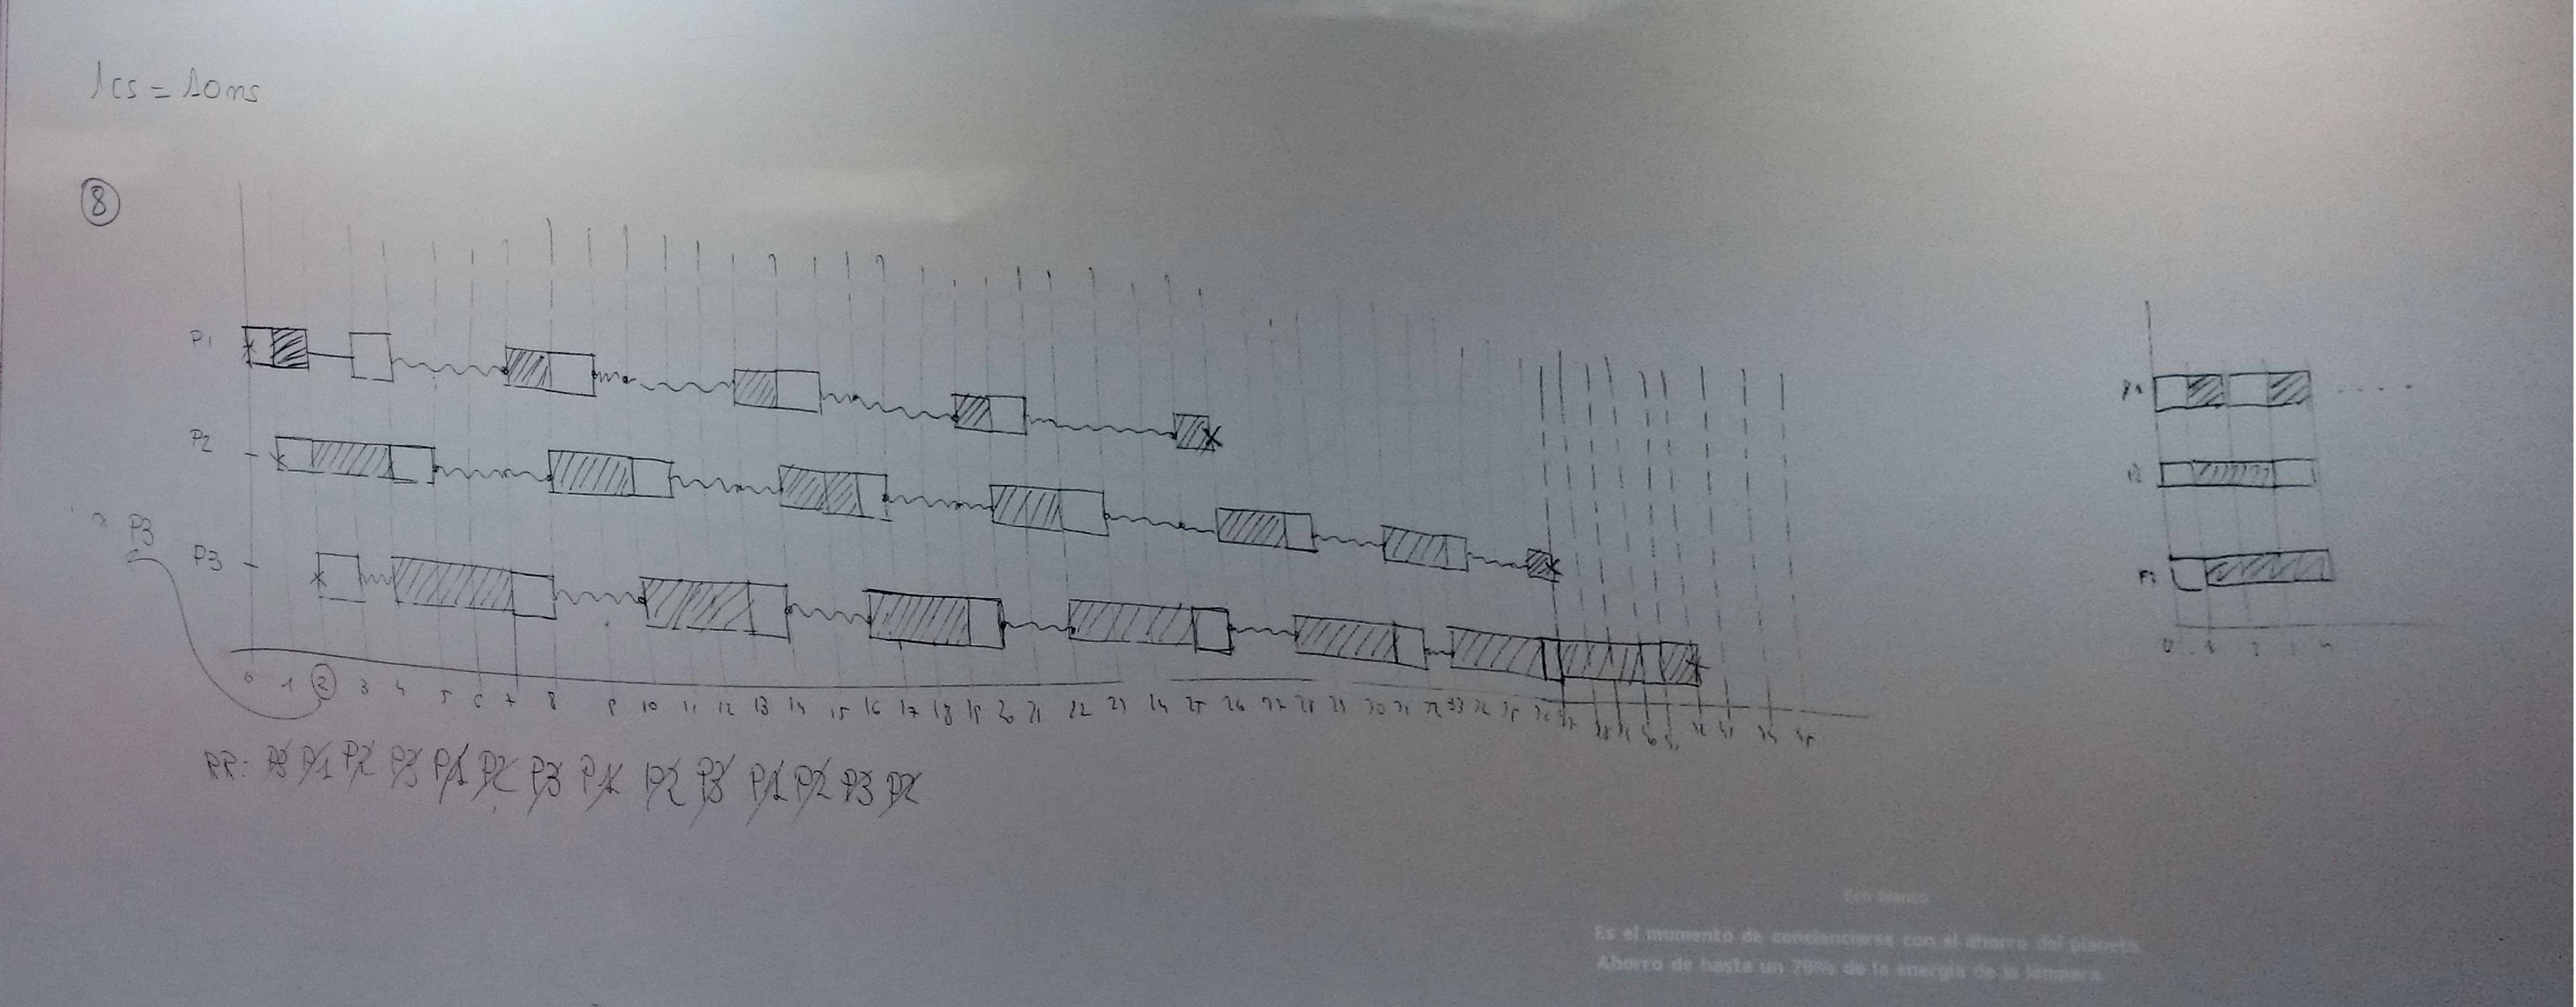 1cs = 10ms
8
P1
P2
P3
P3
0 1 2 3 4 5 6 7 8 9 10 11 12 13 14 15 16 17 18 19 20 21 22 23 24 25 26 27 28 29 30 31 32 33
RR: P3 P1 P2 P3 P1 P2 P3 P1 P2 P3 P1 P2 P3 P2
P1
P2
Eco blanco
Es el momento de concienciarse con el ahorro del planeta.
Ahorro de hasta un 70% de la energía de la lámpara